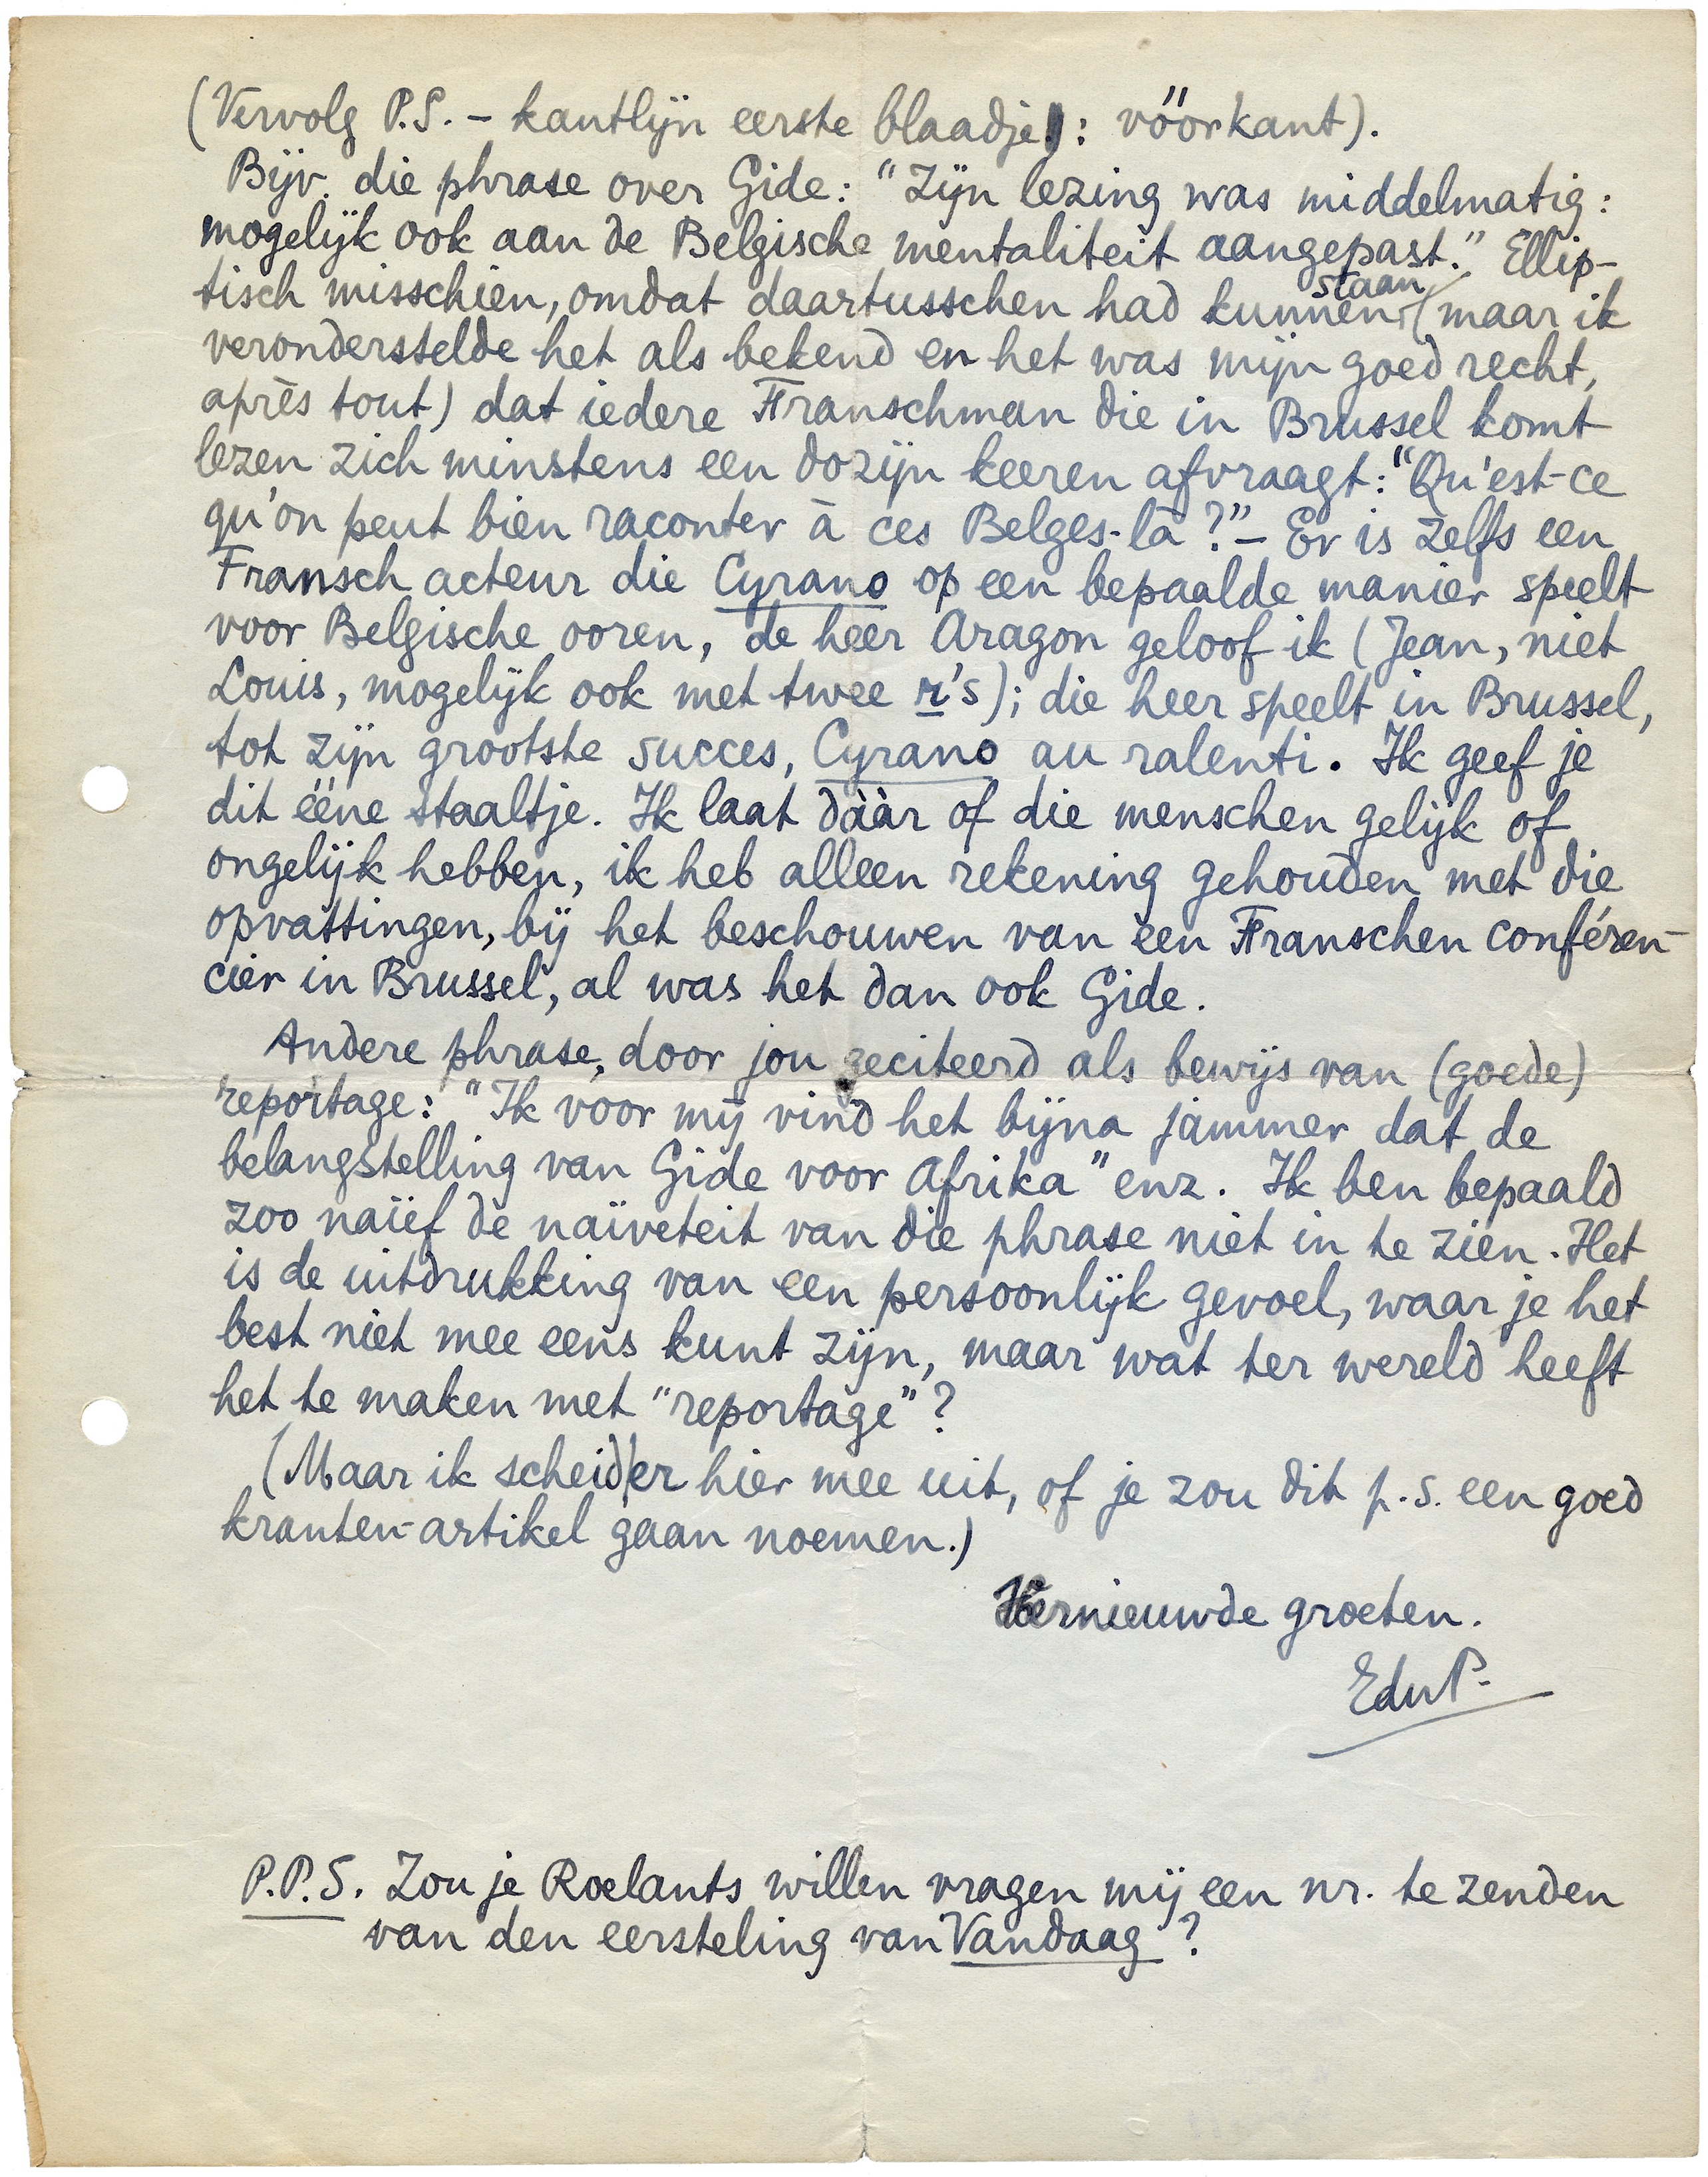 (Vervolg P.S. – kantlijn eerste blaadje: vóórkant).
Bijv. die phrase over Gide: "Zijn lezing was middelmatig:
mogelijk ook aan de Belgische mentaliteit aangepast." Ellip-
tisch misschien, omdat daartusschen had kunnen staan (maar ik
veronderstelde het als bekend en het was mijn goed recht,
après tout) dat iedere Franschman die in Brussel komt
lezen zich minstens een dozijn keeren afvraagt: "Qu'est-ce
qu'on peut bien raconter à ces Belges-là?" – Er is zelfs een
Fransch acteur die Cyrano op een bepaalde manier speelt
voor Belgische ooren, de heer Aragon geloof ik (Jean, niet
Louis, mogelijk ook met twee r's); die heer speelt in Brussel,
tot zijn grootste succes, Cyrano au ralenti. Ik geef je
dit ééne staaltje. Ik laat dààr of die menschen gelijk of
ongelijk hebben, ik heb alleen rekening gehouden met die
opvattingen, bij het beschouwen van een Franschen conféren-
cier in Brussel, al was het dan ook Gide.
Andere phrase, door jou geciteerd als bewijs van (goede)
reportage: "Ik voor mij vind het bijna jammer dat de
belangstelling van Gide voor Afrika" enz. Ik ben bepaald
zoo naïef de naïveteit van die phrase niet in te zien. Het
is de uitdrukking van een persoonlijk gevoel, waar je het
best niet mee eens kunt zijn, maar wat ter wereld heeft
het te maken met "reportage"?
(Maar ik scheid er hier mee uit, of je zou dit p.s. een goed
kranten-artikel gaan noemen.)
Hernieuwde groeten.
EduP.
P.P.S. Zou je Roelants willen vragen mij een nr. te zenden
van den eersteling van Vandaag?